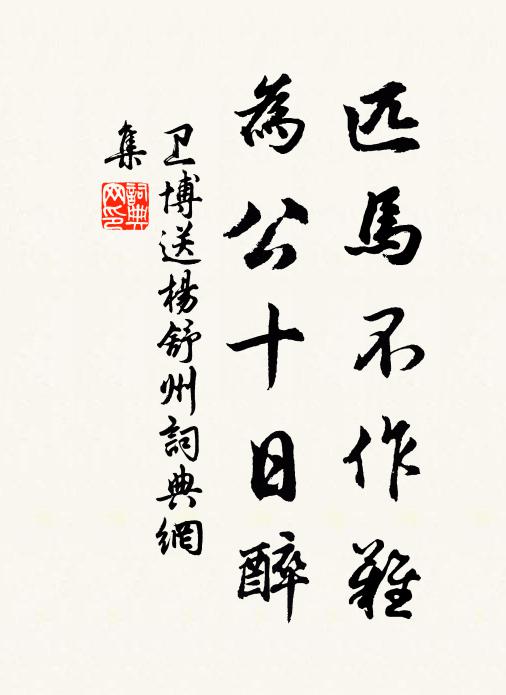 匹馬不作難
為公十日醉
卫博送楊舒州詞典網
集
詞典
网印